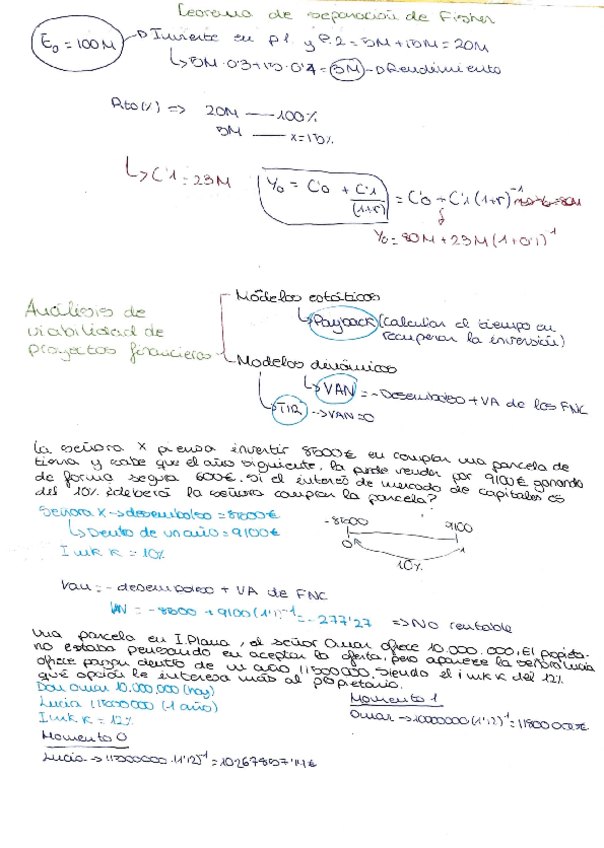 Teorema de separación de Fisher
E₀ = 100M → Invierte en p1. y P.2 = 5M + 15M = 20M
↳ 5M · 0'3 + 15 · 0'1 = 3M → Rendimiento
Rto (%) => 20M — 100%
3M — x = 15%
↳ C'1 = 23M Y₀ = C'0 + C'1/(1+r) = C'0 + C'1 (1+r)⁻¹
Y₀ = 80M + 23M (1+0'1)⁻¹
Análisis de viabilidad de proyectos financieros
Modelos estáticos
↳ Payback (calcular el tiempo en
recuperar la inversión)
Modelos dinámicos
↳ VAN = - Desembolso + VA de los FNC
↳ TIR → VAN = 0
La señora X piensa invertir 8500€ en comprar una parcela de
tierra y sabe que el año siguiente, la puede vender por 9100€ ganando
de forma segura 600€. Si el interés de mercado de capitales es
del 10% ¿deberá la señora comprar la parcela?
Señora X → desembolso = 8500€
↳ Dentro de un año = 9100€
I mk K = 10%
-8500 9100
0 1
10%
Van = - desembolso + VA de FNC
VAN = -8500 + 9100 (1'1)⁻¹ = -277'27 => No rentable
Una parcela en I.Plana, el señor Omar ofrece 10.000.000, El propieta-
rio estaba pensando en aceptar la oferta, pero aparece la señora Lucia
ofrece pagar dentro de un año 11500000. Siendo el i mk K del 12%
qué opción le interesa más al propietario.
Don Omar 10.000.000 (hoy)
Lucia 11500000 (1 año)
I mk K = 12%
Momento 0
Lucia → 11500000 · 1'12⁻¹ = 10267857'14€
Momento 1
Omar → 10000000 (1'12)¹ = 11200000€